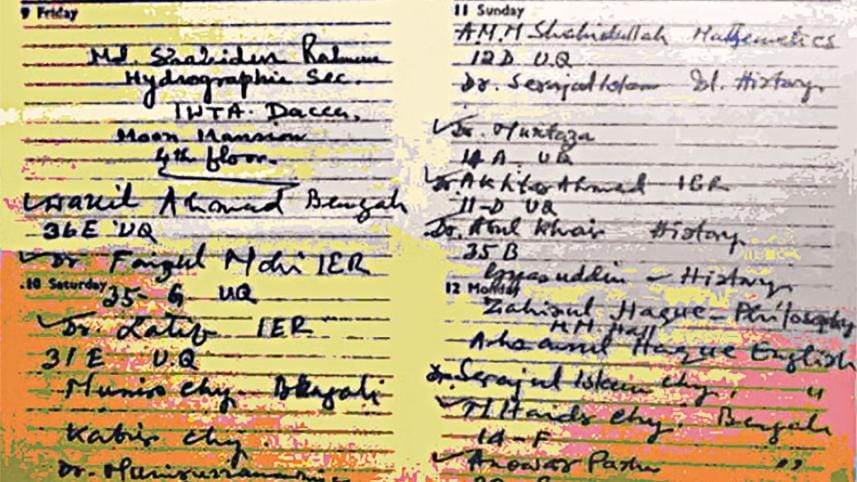 9 Friday
Md. Shahidur Rahman
Hydrographic Sec.
IWTA. Dacca.
Moon Mansion
4th floor.
Wakil Ahmad Bengali
36E UQ
Dr Faizul Mohi IER
10 Saturday
35-G UQ
Dr. Latif IER
31E U.Q
Munir Chy Bengali
Kabir Chy
Dr. Muniruzzaman
11 Sunday
A.M.M Shahidullah Mathematics
12D U.Q
Dr. Serajul Islam Isl. History
Dr. Murtaza
14 A UQ
Dr. Akhter Ahmad IER
11-D UQ
Dr. Abul Khair History
35 B
Gyasuddin - History
12 Monday
Zahirul Haque - Philosophy
M.M Hall
Ahsanul Haque English
Dr. Serajul Islam Chy. "
Chy. Bengali
14-F
Anowar Pasha "